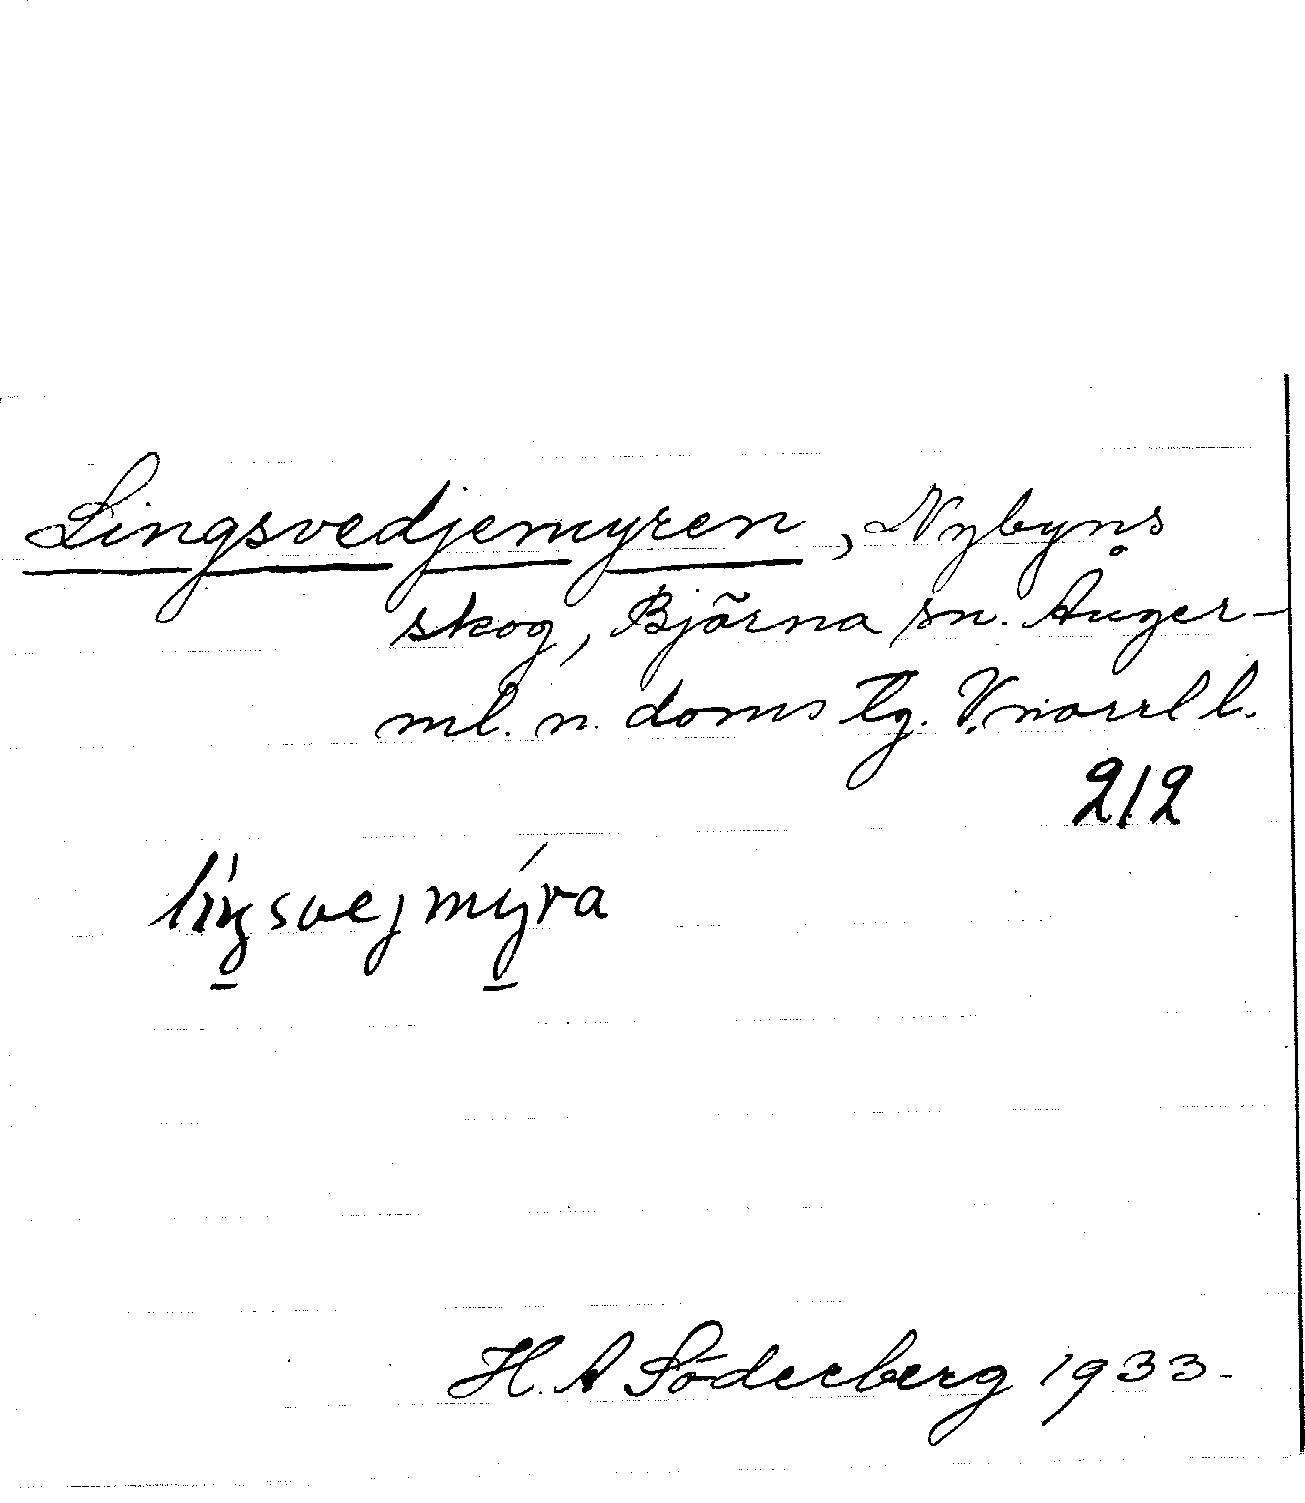 Lingsvedjemyren, Nybyns
skog, Björna sn. Ånger-
ml. n. doms tg. V. norrl l.
212
lígsvejmýra
H. A Söderberg 1933.